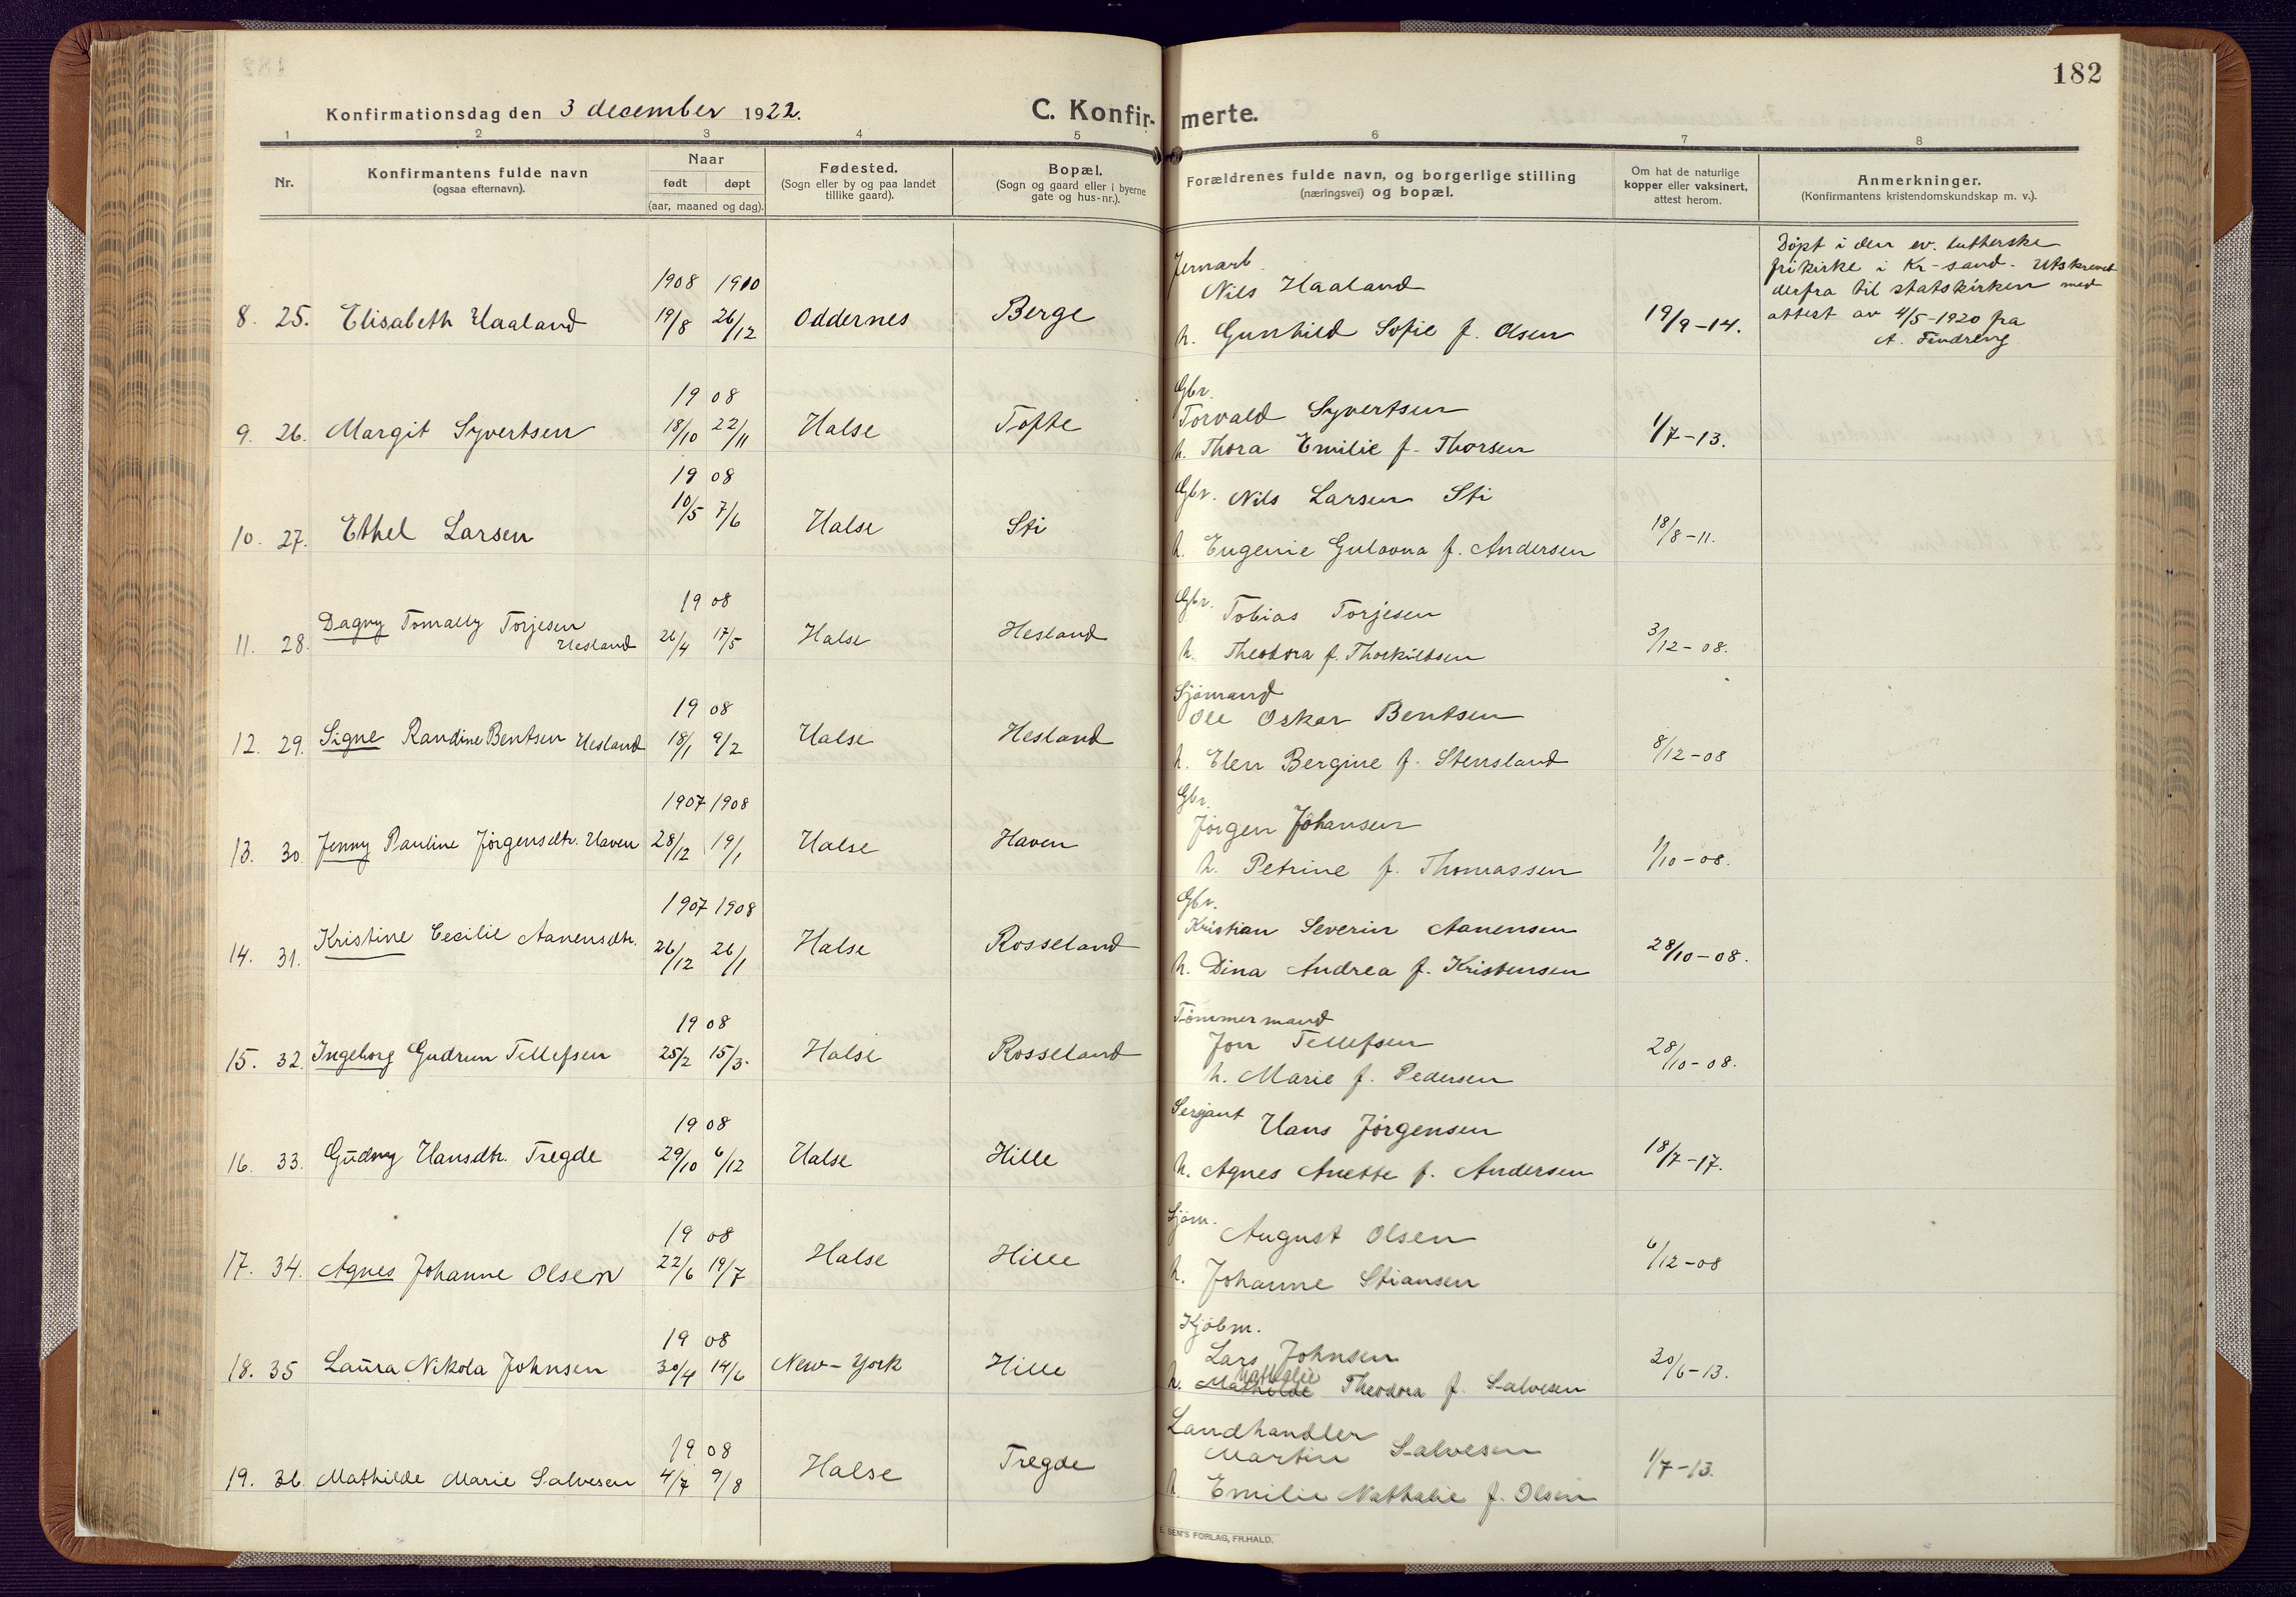 182
Konfirmationsdag den 3 december 1922.
C. Konfir- merte.
1 2 3 4 5 6 7 8
Nr.
Konfirmantens fulde navn
(ogsaa efternavn).
Naar
født døpt
(aar, maaned og dag).
Fødested.
(Sogn eller by og paa landet
tillike gaard).
Bopæl.
(Sogn og gaard eller i byerne
gate og hus-nr.).
Forældrenes fulde navn, og borgerlige stilling
(næringsvei) og bopæl.
Om hat de naturlige
kopper eller vaksinert,
attest herom.
Anmerkninger.
(Konfirmantens kristendomskundskap m. v.).
1908 1910
8. 25. Elisabeth Haaland 19/8 26/12 Oddernes Berge
Jernarb.
Nils Haaland
h. Gunhild Sofie f. Olsen
19/9-14.
Döpt i den ev. lutherske
frikirke i Kr-sand. Utskrevet
derfra til statskirken med
attest av 4/5-1920 fra
A. Tindreng
19 08
9. 26. Margit Syvertsen 18/10 22/11 Halse Tofte
Gbr.
Torvald Syvertsen
h. Thora Emilie f. Thorsen
1/7-13.
19 08
10. 27. Ethel Larsen 10/5 7/6 Halse Sti
Gbr. Nils Larsen Sti
h. Eugenie Gulovna f. Andersen
18/8-11.
19 08
11. 28. Dagny Tomally Torjesen
Hesland 26/4 17/5 Halse Hesland
Gbr. Tobias Torjesen
h. Theodora f. Thorkildsen
3/12-08.
19 08
12. 29. Signe Randine Bentsen Hesland 18/1 9/2 Halse Hesland
Sjömand
Ole Oskar Bentsen
h. Elen Bergine f. Stensland
8/12-08
1907 1908
13. 30. Jenny Pauline Jörgensdtr. Haven 28/12 19/1 Halse Haven
Gbr.
Jörgen Johansen
h. Petrine f. Thomassen
1/10-08.
1907 1908
14. 31. Kristine Cecilie Aanensdtr. 26/12 26/1 Halse Rosseland
Gbr.
Kristian Severin Aanensen
h. Dina Andrea f. Kristensen
28/10-08.
19 08
15. 32. Ingeborg Gudrun Tellefsen 25/2 15/3. Halse Rosseland
Tömmermand
Jon Tellefsen
h. Marie f. Pedersen
28/10-08.
19 08
16. 33. Gudny Hansdtr. Tregde 29/10 6/12 Halse Hille
Sergant Hans Jörgensen
h. Agnes Anette f. Andersen
18/7-17.
19 08
17. 34. Agnes Johanne Olsen 22/6 19/7 Halse Hille
Sjöm. August Olsen
h. Johanne Stiansen
6/12-08
19 08
18. 35 Laura Nikola Johnsen 30/4 14/6 New-York Hille
Kjöbm.
Lars Johnsen
Nathalie
h. Mathilde Theodora f. Salvesen
30/6-13.
19 08
19. 36. Mathilde Marie Salvesen 4/7 9/8 Halse Tregde
Landhandler
Martin Salvesen
h. Emilie Nathalie f. Olsen
1/7-13.
E. SEM'S FORLAG, FR.HALD.